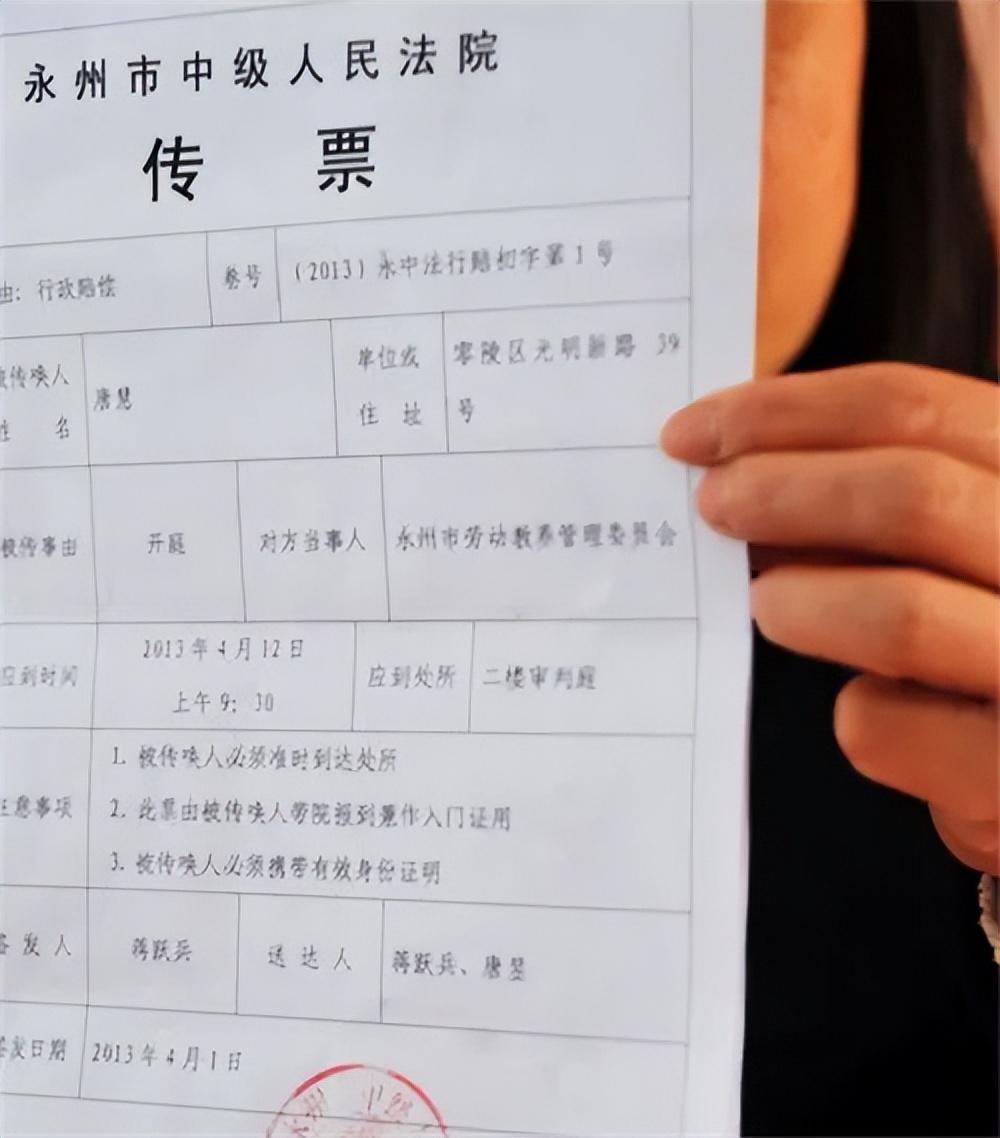 永州市中级人民法院
传 票
由：行政赔偿 案号 （2013）永中法行赔初字第1号
被传唤人姓名 唐慧 单位或住址 零陵区光明新路 39号
被传事由 开庭 对方当事人 永州市劳动教养管理委员会
应到时间 2013年4月12日 应到处所 二楼审判庭
上午9：30
注意事项
1. 被传唤人必须准时到达处所
2. 此票由被传唤人带院报到兼作入门证用
3. 被传唤人必须携带有效身份证明
签发人 蒋跃兵 送达人 蒋跃兵、唐
签发日期 2013年4月1日
永州 中级